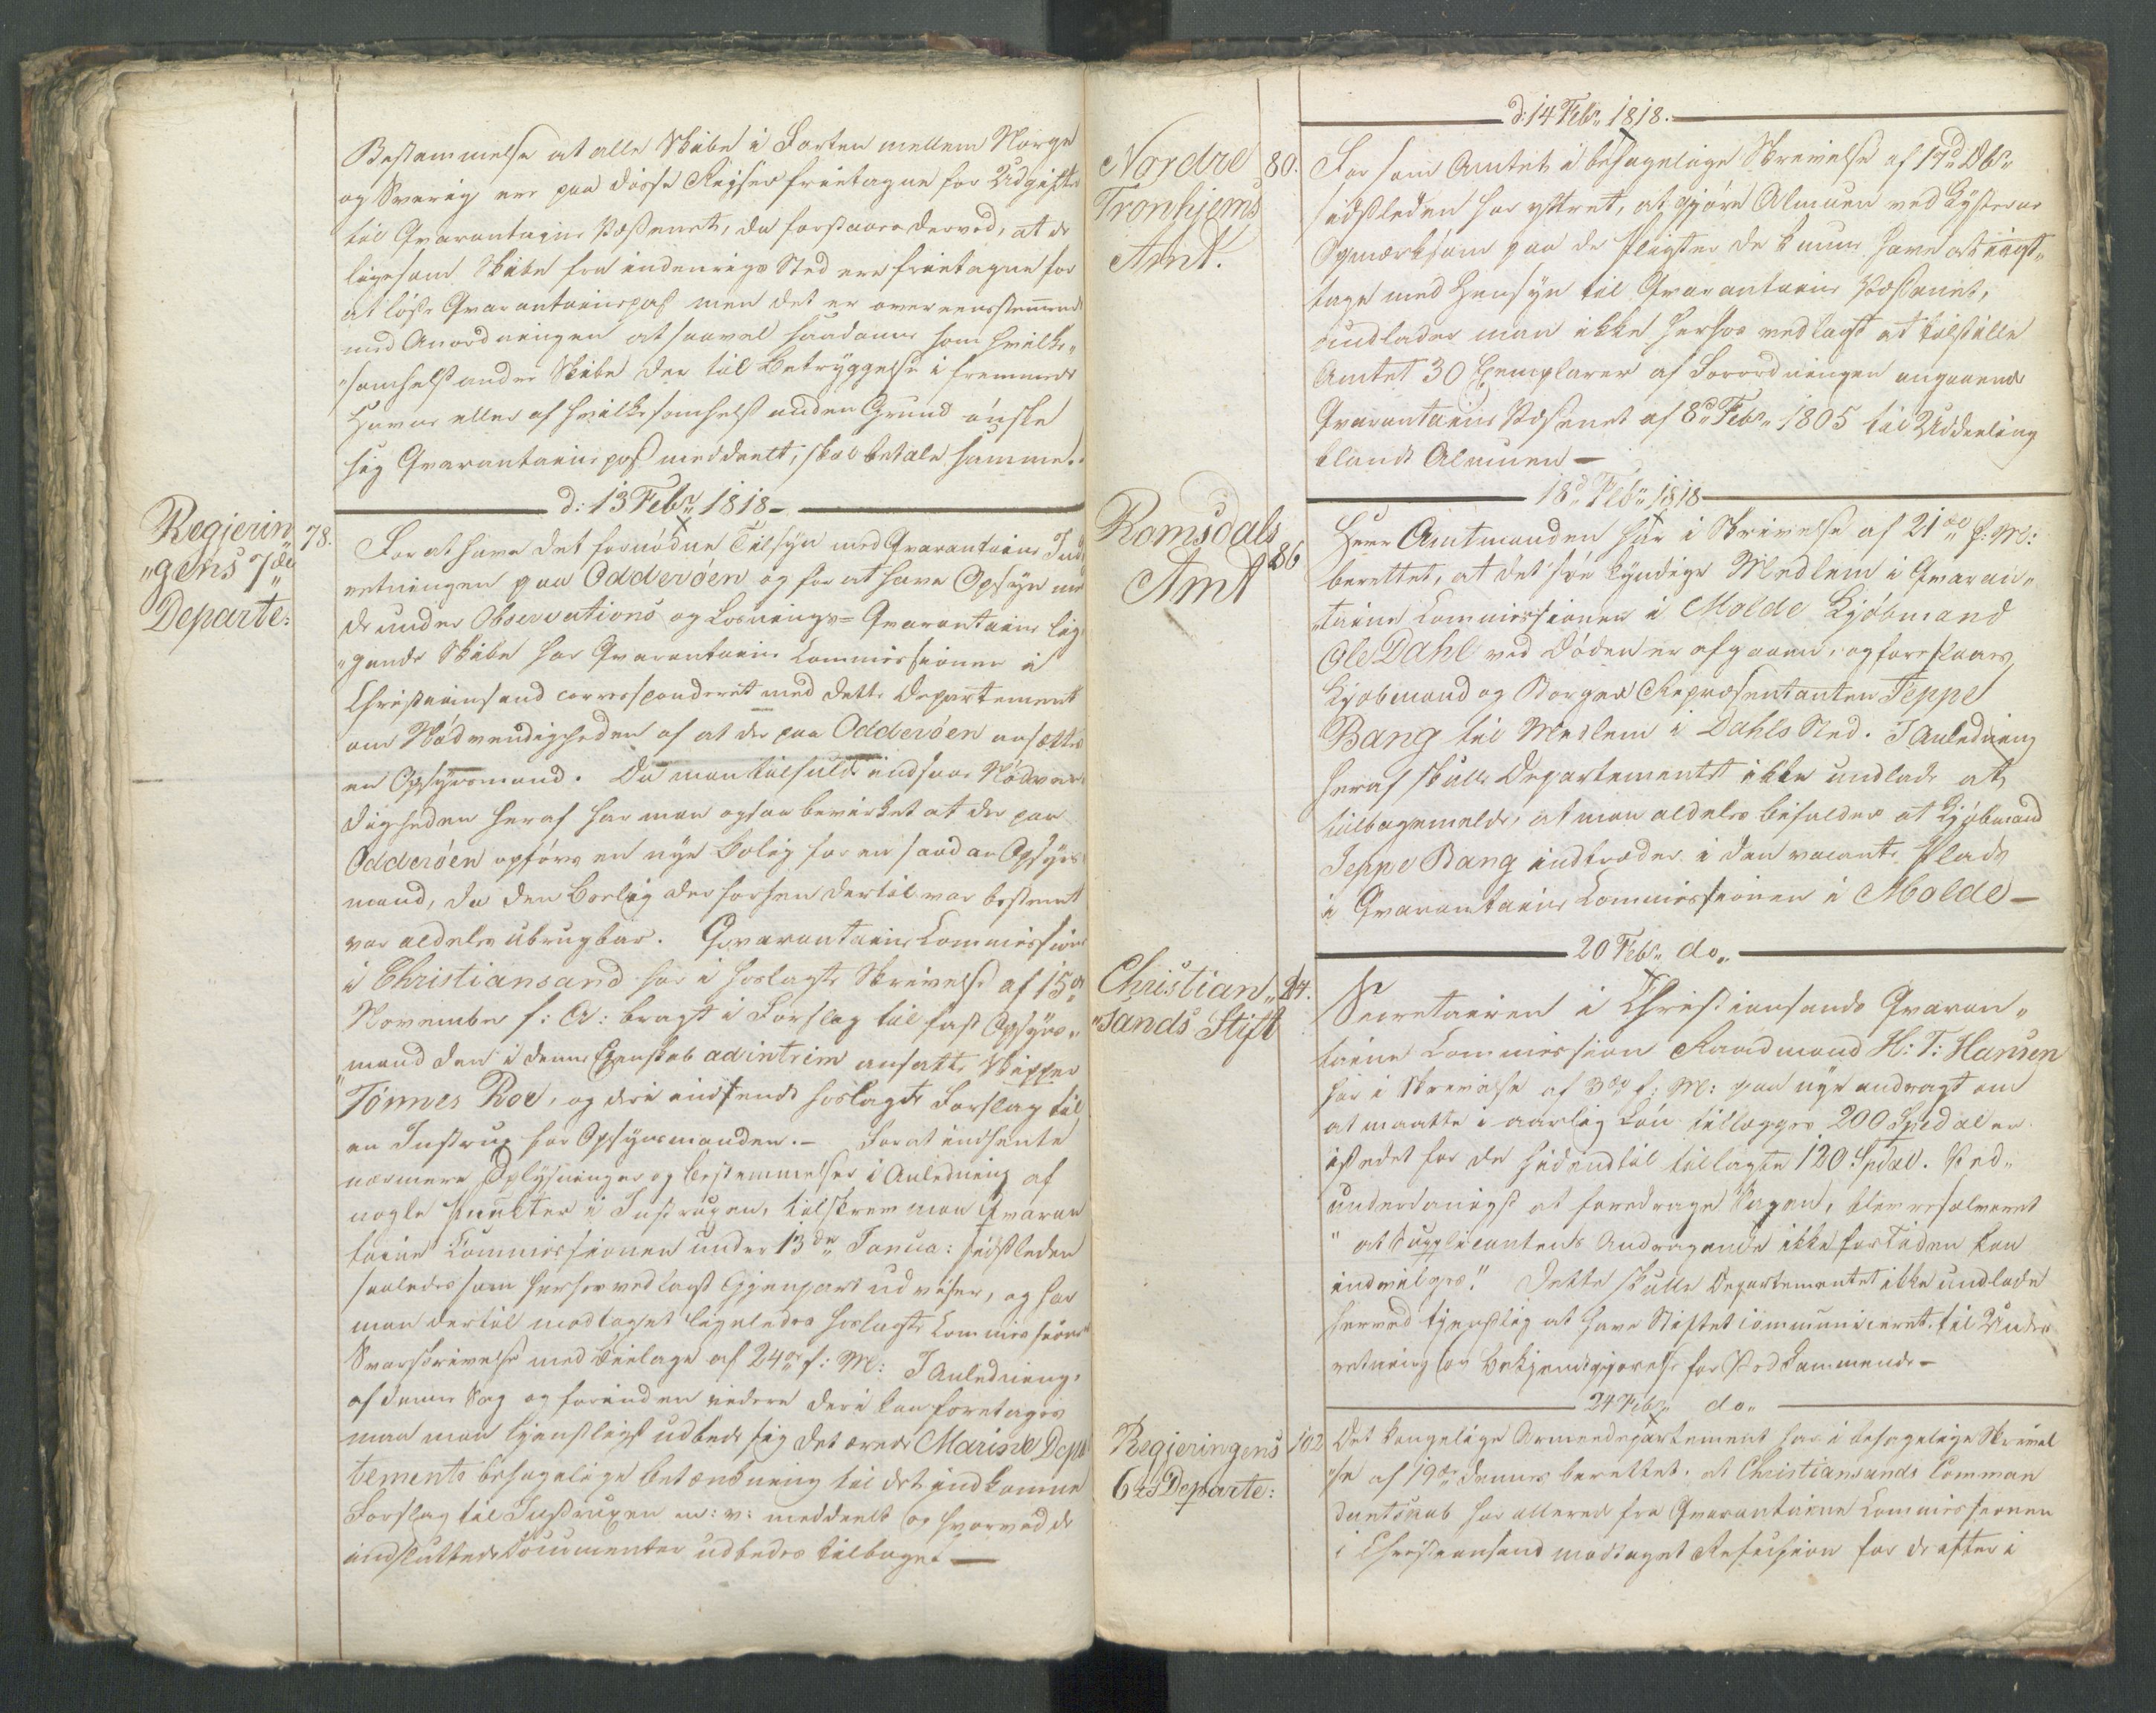 Bestemmelse at alle Skibe i Farten mellem Norge
og Sverrig ere paa disse Reiser frietagne for Udgifter
til Qvarantaine Væsenet, da forstaaes derved, at de
ligesom Skibe fra indenrigs Sted ere frietagne for
at löse Qvarantainepas men det er overeensstemmende
med Anordningen at saavel saadanne som hvilke„
„somhelst andre Skibe der til Betryggelse i fremmede
Havne eller af hvilkesomhelst anden Grund önske
sig Qvarantainepas meddeelt, skal betale samme.
d: 13 Febr„ 1818-
Regjerin„
„gens 7de
Departe:
78.
For at have det fornödne Tilsyn med Qvarantaine Ind„
retningen paa Odderöen og for at have Opsyn med
de under Observations og Losnings= Qvarantaine lig„
„gende Skibe har Qvarantaine Commissionen i
Christiansand corresponderet med dette Departement
om Nödvendigheden af at der paa Odderöen ansættes
en Opsynsmand. Da man tilfulde indsaae Nödven„
digheden heraf har man ogsaa bevirket at der paa
Odderöen opföres en nye Bolig for en saadan Opsyns„
mand, da den Boelig der forhen dertil var bestemt
var aldeles ubrugbar. Qvarantaine Commissionen
i Christiansand har i hoslagte Skrivelse af 15de
November f: A: bragt i Forslag til fast Opsyns„
„mand den i denne Egenskab ad intrim ansatte Skipper
Tönnes Roe, og deri indsendt hoslagte Forslag til
en Instrux for Opsynsmanden.- For at indhente
nærmere Oplysninger og Bestemmelser i Anledning af
nogle Punkter i Instruxen, tilskrev man Qvaran
taine Commissionen under 13de Janua: sidstleden
saaledes som herhos vedlagt Gjenpart udviser, og har
man dertil modtaget ligeledes hoslagte Commissions
Svarskrivelse med Bielage af 24de f: M: I Anledning
af denne Sag og forinden videre deri kan foretages
maa man tjenstligst udbede sig det ærede Marine Depar
tements behagelige Betænkning til det indkomne
Forslag til Instruxen m: v: meddeelt og hvorved de
indsluttede Documenter udbedes tilbage. —
d: 14 Febr„ 1818.
Nordre
Tronhjems
Amt.
80.
Da som Amtet i behagelige Skrivelse af 17d Dbr„
sidstleden har yttret, at gjöre Almuen ved Kysterne
Opmærksom paa de Pligter de kunne have at iagt„
tage med Hensyn til Qvarantaine Væsenet,
undlader man ikke herhos vedlagt at tilstille
Amtet 30 Exemplarer af Forordningen angaaende
Qvarantaine Væsenet af 8de Febr„ 1805 til Uddeeling
blandt Almuen —
18d„ Feb„ 1818
Romsdals
Amt
86
Herr Amtmanden har i Skrivelse af 21de f: M:
berettet, at det söe kyndige Medlem i Qvaran„
„taine Commissionen i Molde Kjöbmand
Ole Dahl ved Döden er afgaaen, og foreslaaes
Kjöbmand og Borger Repræsentanten Jeppe
Bang til Medlem i Dahls Sted. I Anledning
heraf skulle Departementet ikke undlade at
tilbagemelde, at man aldeles bifalder at Kjöbmand
Jeppe Bang indtræder i den vacante Plads
i Qvarantaine Commissionen i Molde —
20 Febr„ do„
Christian„
„sands Stift
94.
Secretairen i Christiansands Qvaran„
taine Commission Raadmand H: T: Hansen
har i Skrivelse af 3de f: M: paa nye andragt om
at maatte i aarlig Lön tillægges 200 Spedaler
istedet for de hidindtil tillagte 120 Spdal. Ved„
underdanigst at foredrage Sagen, blev resolveret
" at Supplicantens Andragende ikke for Tiden kan
indvilges." Dette skulle Departementet ikke undlade
herved tjenstlig at have Stiftet communiceret til Under
retning og Bekjendtgjörelse for Vedkommende —
24 Febr„ do„
Regjeringens
6te Departe:
102
Det Kongelige Armeedepartement har i behagelige Skrivel
„se af 19de dennes berettet, at Christiansands Comman
dantskab har allerede fra Qvarantaine Commissionen
i Christiansand modtaget Refusion for de efter i